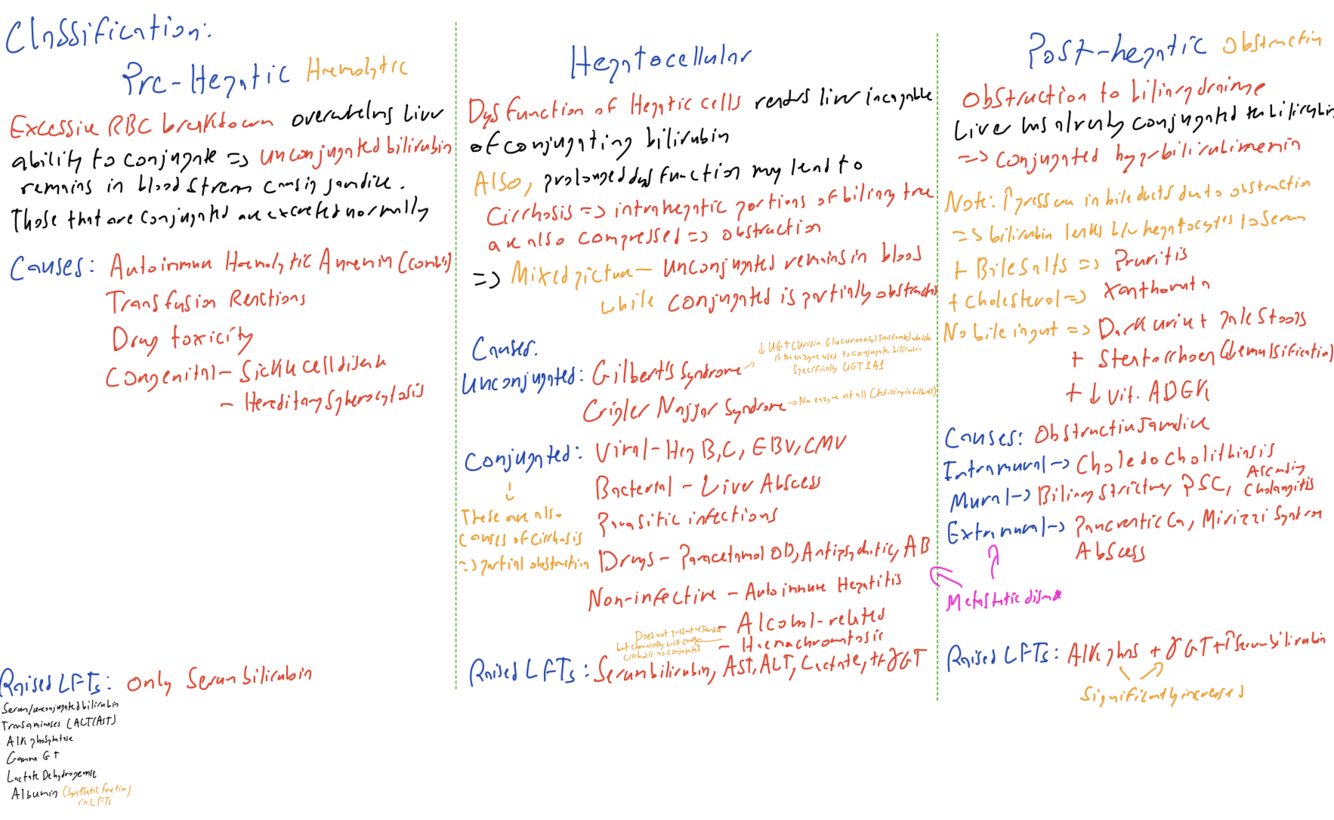 Classification:
Pre-Hepatic Haemolytic
Excessive RBC breakdown overwhelms liver
ability to conjugate => unconjugated bilirubin
remains in blood stream causing jaundice.
Those that are conjugated are excreted normally
Causes: Autoimmune Haemolytic Anaemia (coombs)
Transfusion Reactions
Drug toxicity
Congenital - Sickle cell disease
- Hereditary Spherocytosis
Raised LFTs: only Serum bilirubin
Serum/unconjugated bilirubin
Transaminases (ALT/AST)
Alk phosphatase
Gamma GT
Lactate Dehydrogenase
Albumin (synthetic function)
in LFTs
Hepatocellular
Dysfunction of Hepatic cells renders liver incapable
of conjugating bilirubin
Also, prolonged dysfunction may lead to
Cirrhosis => intrahepatic portions of biliary tree
are also compressed => obstruction
=> Mixed picture - unconjugated remains in blood
while conjugated is partially obstructed
Causes.
Unconjugated: Gilbert's Syndrome -> ↓ UGT (Uridin Glucuronosyl Transferase) which
is the enzyme used to conjugate bilirubin
Specifically UGT1A1
Crigler Najjar Syndrome -> No enzyme at all
Conjugated: Viral - Hep B,C, EBV, CMV
Bacterial - Liver Abscess
Parasitic infections
Drugs - Paracetamol OD, Antipsychotic, AB
Non-infective - Autoimmune Hepatitis
- Alcohol-related
- Haemachromatosis
↓
These are also
causes of Cirrhosis
=> partial obstruction
Does not present w/ Jaundice
but chronically will cause
cirrhosis => conjugated
Raised LFTs: Serum bilirubin, AST, ALT, Lactate, ++ γGT
Post-hepatic Obstruction
Obstruction to biliary drainage
Liver has already conjugated the bilirubin
=> conjugated hyperbilirubinemia
Note: ↑ pressure in bile ducts due to obstruction
=> bilirubin leaks b/w hepatocytes to serum
+ Bile Salts => Pruritis
+ cholesterol => Xanthomata
No bile in gut => Dark urine + pale stools
+ Steatorrhoea (demulsification)
+ ↓ Vit. ADEK
Causes: Obstructive Jaundice
Intramural -> Choledocholithiasis
Mural -> Biliary Stricture, PSC, Ascending
Cholangitis
Extramural -> Pancreatic Ca, Mirizzi Syndrome
Abscess
Metastatic disease
Raised LFTs: Alk phos + γGT + ↑ Serum bilirubin
Significantly increased